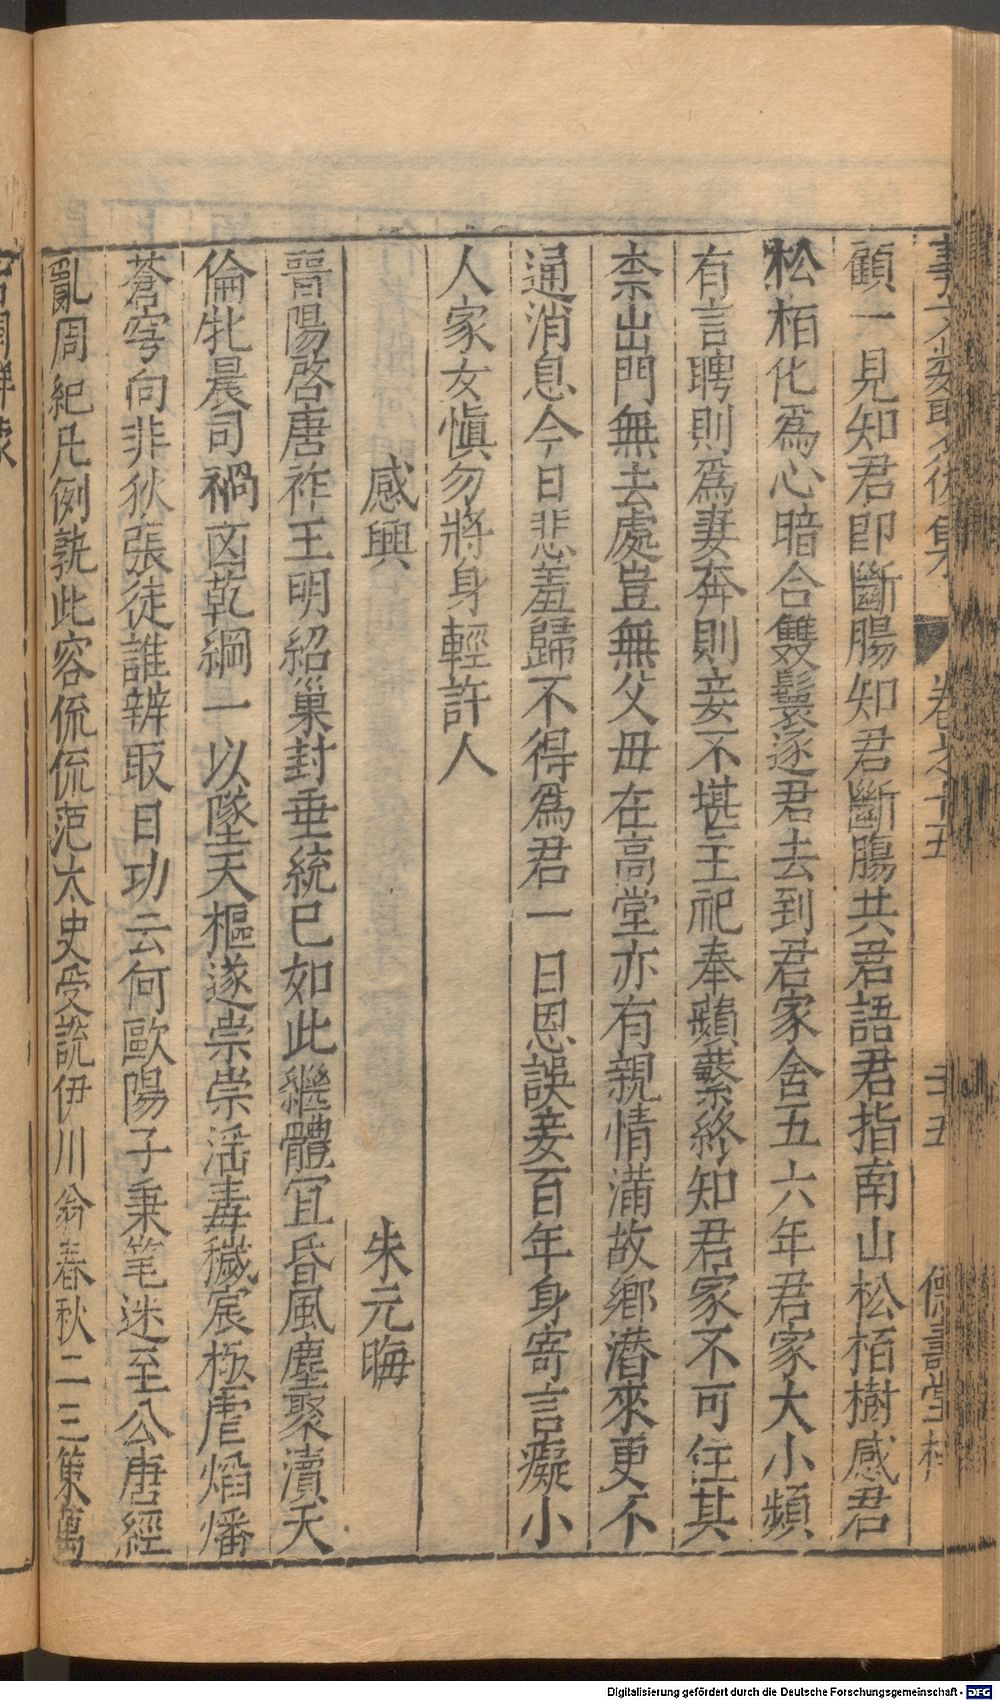 顧一見知君即斷腸知君斷膓共君語君指南山松栢樹感君
松栢化爲心暗合雙鬟逐君去到君家舍五六年君家大小頻
有言聘則爲妻奔則妾不堪主祀奉蘋蘩終知君家不可住其
柰出門無去處豈無父母在高堂亦有親情滿故鄉潛來更不
通消息今日悲羞歸不得爲君一日恩誤妾百年身寄言癡小
人家女愼勿將身輕許人
感興 朱元晦
晉陽啓唐祚王明紹巢封垂統已如此繼體宜昏風塵聚瀆天
倫牝晨司禍凶乾綱一以墜天樞遂崇崇淫毒穢宸極虐焰燔
蒼穹向非狄張徒誰辨取日功云何歐陽子秉筆迷至公唐經
亂周紀凡例孰此容侃侃范太史受說伊川翁春秋二三策萬
Digitalisierung gefördert durch die Deutsche Forschungsgemeinschaft - DFG